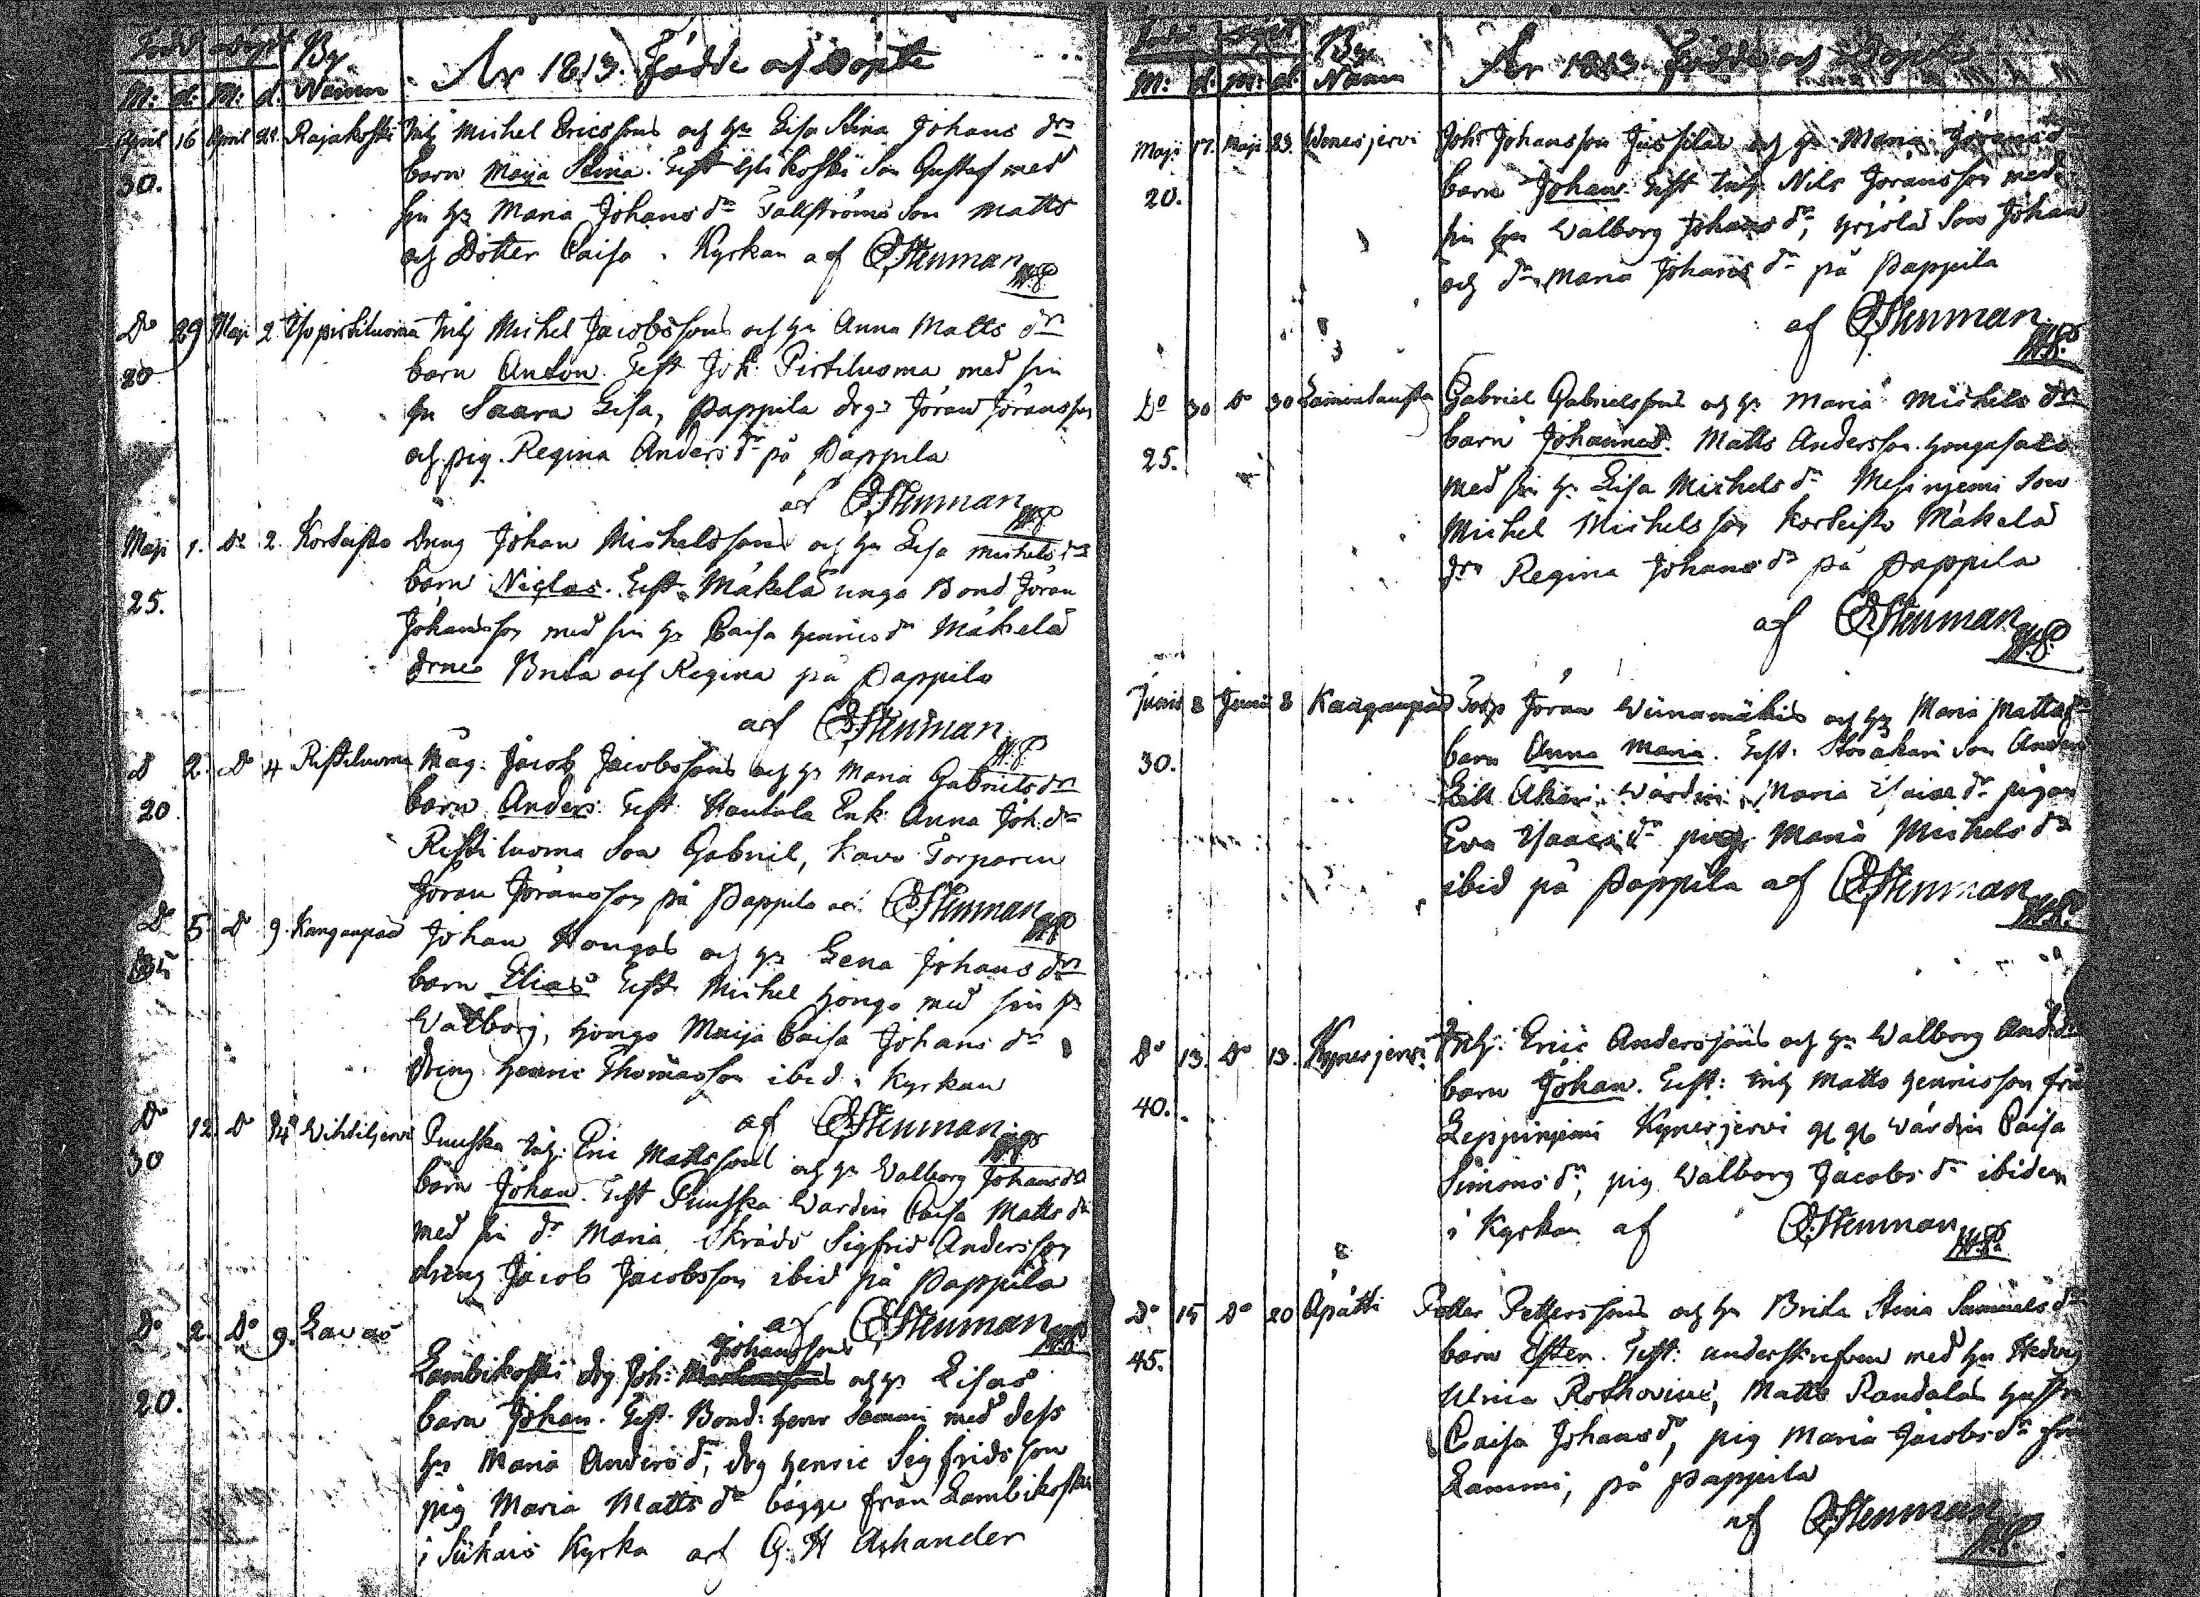 Född Döpt By
M: d: M: d. Namn
År 1813. Födde och Döpte
April 16 April Rajakoski Inhs Michel Ericssons och h:u Lisa Stina Johans dr
30. barn Maija Stina. Test. Ylikoski Son Gustaf med
sin h:u Maria Johans dr Tallströms Son Matts
och Dotter Caisa i Kyrkan af Stenman
D:o 29 Maji 2 Isopistiluoma Inhs Michel Jacobssons och h:u Anna Matts dr
20 barn Anton. Test. Joh: Pistiluoma med sin
h:u Saara Lisa, Pappila drg: Jöran Jöransson
och pig. Regina Anders dr på Pappila
af Stenman
Maji 1. D:o 2. Korteisto Dreng Johan Michelssons och h:u Lisa Michels dr
25. barn Niclas. Test. Mäkelä unga Bond Jöran
Johansson med sin h:u Caisa Henrics dr Mäkelä
drnes Brita och Regina på Pappila
af Stenman
D 2. D:o 4 Ristiluoma Måg: Jacob Jacobssons och h:u Maria Gabriels dr
20 barn Anders. Test. Hautala Enk: Anna Joh: dr
Ristiluoma Son Gabriel, Kavo Torparen
Jöran Jöransson på Pappila af Stenman
D:o 5 D:o 9. Kanganpää Johan Hongos och h:u Lena Johans dr
barn Elias Test. Michel Hongo med sin h:u
Walborg, Hongo Maija Caisa Johans dr
Dreng Henric Thomasson ibid. i Kyrkan
af Stenman
D:o 12 D:o 14 Wihtiljervi Puuska Inh: Eric Mattssons och h:u Walborg Johans dr
30 barn Johan. Test. Puuska Wärdin Caisa Matts dr
med sin dr Maria, Skrädd. Sigfrid Andersson
dreng Jacob Jacobsson ibid på Pappila
af Stenman
Johanssons
D:o 2. D:o 9. Lavas Lambikoski drg Joh: och h:u Lisas
20. barn Johan. Test. Bond: Henr Sammi med dess
h:u Maria Anders dr, drg Henric Sigfridsson
pig Maria Matts dr bägge från Lambikoski
i Siikais Kyrka af G. H Ashander
Född Döpt By
M: d. m: d. Namn
År 1813 Födde och Döpte
Maji 17. Maji 23. Wenesjervi Joh: Johansson Jussilas och h:u Maria Jörans dr
20. barn Johan. Test. Inh: Nils Jöransson med
sin h:u Walborg Johans dr, Yrjölä Son Johan
och dr Maria Johans dr på Pappila
af Stenman
D:o 30 D:o 30 Gabriel Gabrielssons och h:u Maria Michels dr
25. barn Johannes. Matts Andersson Hongasalo
med sin h:u Lisa Michels dr Mesinjemi Son
Michel Michelsson Korteisto Mäkelä
drn Regina Johans dr på Pappila
af Stenman
Junii 8 Junii 8 Kanganpää Torp Jöran Wiinamäkis och h:u Maria Matts dr
30. barn Anna Maria. Test: Stor Akari Son Anders
Lill Akari Wärdin Maria Isaacs dr pigan
Eva Isaacs dr pig. Maria Michels dr
ibid på Pappila af Stenman
D:o 13. D:o 13. Kynesjervi Inhs: Eric Anderssons och h:u Walborg And: dr
40. barn Johan. Test: Inhs Matts Henricsson från
Leppinjemi Kynesjervi Wärdin Caisa
Simons dr, pig Walborg Jacobs dr ibidem
i Kyrkan af Stenman
D:o 15 D:o 20 Apätti Petter Petterssons och h:u Brita Stina Samuels dr
45. barn Ester. Test: underskrefven med h:u Hedvig
Ulrica Rothovius, Matts Randalas Hustru
Caisa Johans dr, pig Maria Jacobs dr från
Lammi, på Pappila
af Stenman